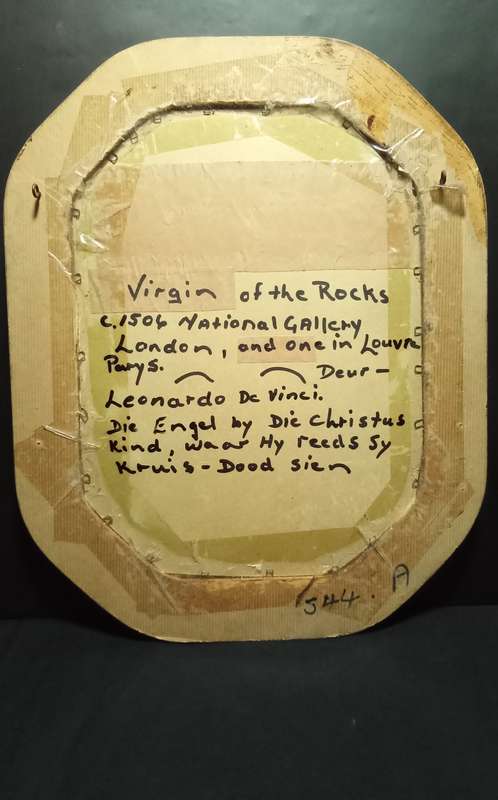 Virgin of the Rocks
c.1506 National Gallery
London, and one in Louvre
Parys.
Deur-
Leonardo Da Vinci.
Die Engel by Die Christus
Kind, waar Hy reeds Sy
Kruis-Dood sien
544. A